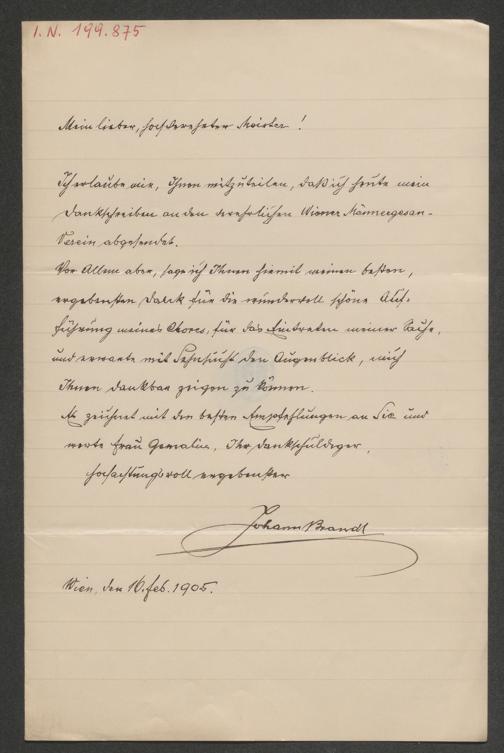 I.N. 199.875
Mein lieber, hochverehrter Meister!
Ich erlaube mir, Ihnen mitzuteilen, daß ich heute mein
Dankschreiben an den verehrlichen Wiener Männergesan-
Verein abgesendet.
Vor Allem aber, sage ich Ihnen hiemit meinen besten,
ergebensten Dank für die wundervoll schöne Auf-
führung meines Chores, für das Eintreten meiner Sache,
und erwarte mit Sehnsucht den Augenblick, mich
Ihnen dankbar zeigen zu können.
Es zeichnet mit den besten Empfehlungen an Sie und
werte Frau Gemalin, Ihr dankschuldiger,
hochachtungsvoll ergebenster
Johann Brandl
Wien, den 16. Feb. 1905.